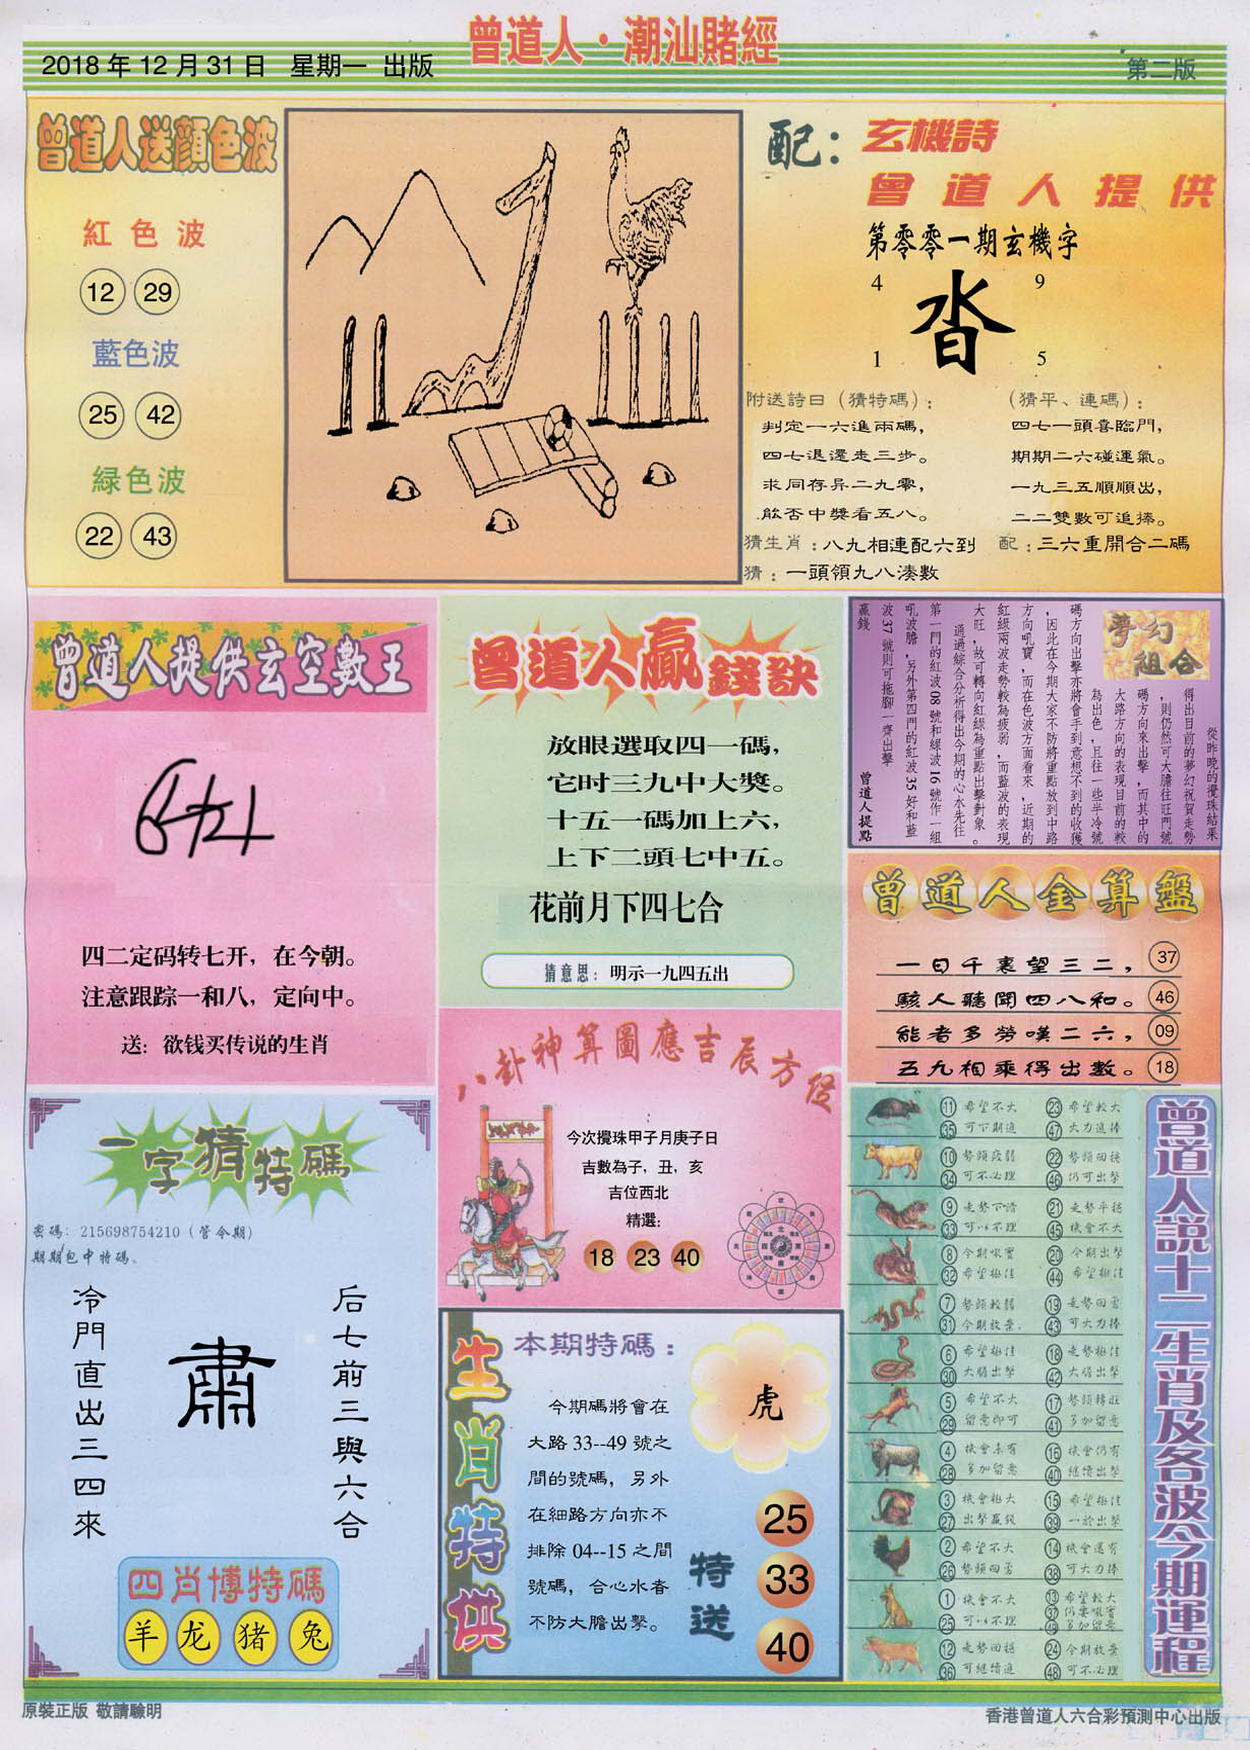 曾道人·潮汕賭經
2018 年 12 月 31 日 星期一 出版
第二版
曾道人送顔色波
紅色波
12 29
藍色波
25 42
緑色波
22 43
配：玄機詩
曾道人提供
第零零一期玄機字
4 9
沓
1 5
附送詩曰（猜特碼）：
判定一六進兩碼，
四七退還走三步。
求同存异二九零，
能否中獎看五八。
（猜平、連碼）：
四七一頭喜臨門，
期期二六碰運氣。
一九三五順順出，
二二雙數可追捧。
猜生肖：八九相連配六到
配：三六重開合二碼
猜：一頭領九八湊數
曾道人提供玄空數王
四二定码转七开，在今朝。
注意跟踪一和八，定向中。
送：欲钱买传说的生肖
曾道人贏錢訣
放眼選取四一碼，
它时三九中大獎。
十五一碼加上六，
上下二頭七中五。
花前月下四七合
猜意思：明示一九四五出
夢幻組合
從昨晚的攪珠結果
得出目前的夢幻祝賀走勢
，則仍然可大膽往旺門號
碼方向來出擊，而其中的
大路方向的表現目前的較
為出色，且往一些半冷號
碼方向出擊亦將會手到意想不到的收獲
，因此在今期大家不防將重點放到中路
方向吼寶，而在色波方面看來，近期的
紅緑兩波走勢較為疲弱，而藍波的表現
大旺，故可轉向紅緑為重點出擊對象。
通過綜合分祈得出今期的心水先往
第一門的紅波08號和緑波16號作一組
吼波膽，另外第四門的紅波35好和藍
波37號則可拖腳一齊出擊
贏錢
曾道人提點
曾道人金算盤
一日千裏望三二， 37
駭人聽聞四八和。 46
能者多勞嘆二六， 09
五九相乘得出數。 18
八卦神算圖應吉辰方位
今次攪珠甲子月庚子日
吉數為子，丑，亥
吉位西北
精選:
18 23 40
一字猜特碼
密碼：215698754210（管令期）
期期包中特碼。
冷門直出三四來
肅
后七前三與六合
四肖博特碼
羊 龙 猪 兔
生肖特供
本期特碼：
虎
今期碼將會在
大路 33--49 號之
間的號碼，另外
在細路方向亦不
排除 04--15 之間
號碼，合心水者
不防大膽出擊。
特送
25
33
40
曾道人説十二生肖及各波今期運程
11 希望不大 23 希望較大
35 可下期追 47 大力追捧
10 勢頭疫弱 22 勢頭回穩
34 可不必理 46 仍可出擊
9 走勢下滑 21 走勢平穩
33 可以不理 45 機會不大
8 今期吼寶 20 今期出擊
32 希望極佳 44 希望極佳
7 勢頭較弱 19 走勢回勇
31 今期放棄. 43 可大力捧
6 希望極佳 18 走勢極佳
30 大膽出擊 42 大膽出擊
5 希望不大 17 勢頭轉旺
29 留意即可 41 多加留意
4 機會未有 16 機會仍有
28 多加留意 40 繼續出擊
3 機會極大 15 希望極佳
27 出擊贏錢 39 一於出擊
2 希望不大 14 機會還有
26 勢頭回勇 38 可大力捧
1 機會不大 13 希望較大
25 可以不理 37 仍要吼寶
49 多加留意
12 走勢回穩 24 今期放棄
36 可繼續追 48 可不必理
原裝正版 敬請驗明
香港曾道人六合彩預測中心出版